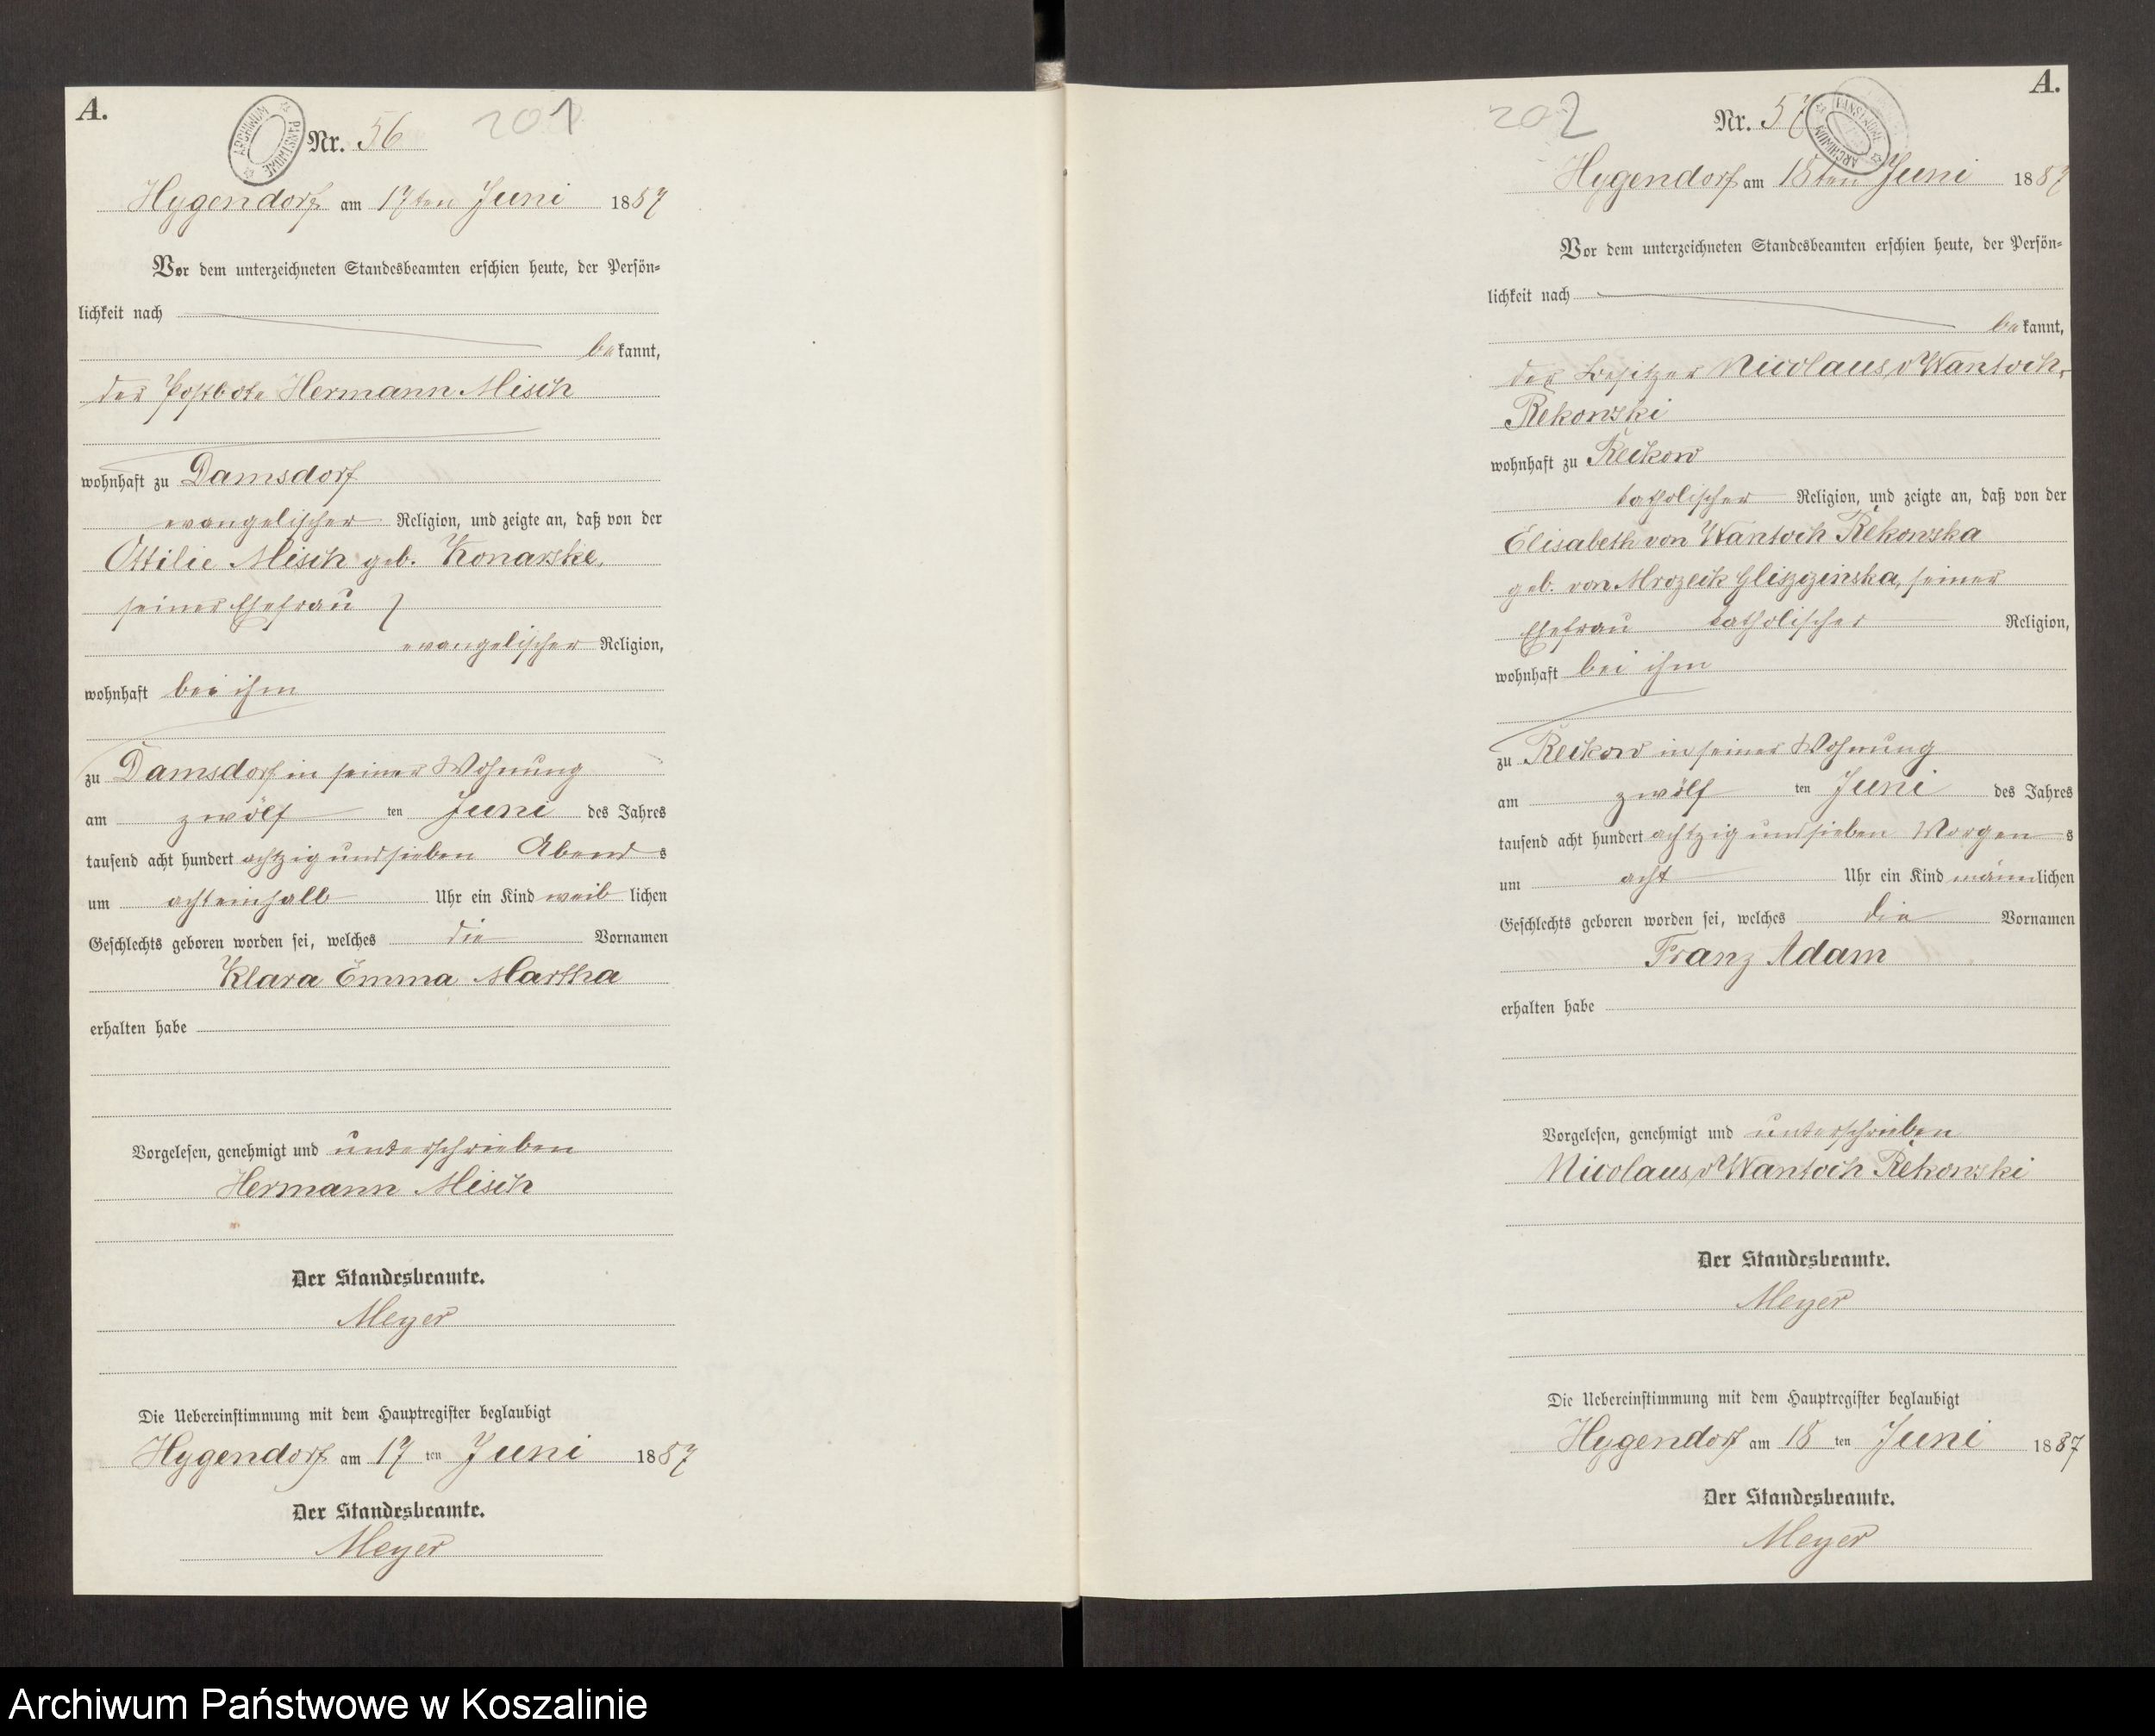 A.
ARCHIWUM PAŃSTWOWE
Nr. 56
201
Hygendorf am 17ten Juni 1887
Vor dem unterzeichneten Standesbeamten erschien heute, der Persön-
lichkeit nach
bekannt,
der Postbote Hermann Misch
wohnhaft zu Damsdorf
evangelischer Religion, und zeigte an, daß von der
Ottilie Misch geb. Konarske,
seiner Ehefrau
evangelischer Religion,
wohnhaft bei ihm
zu Damsdorf in seiner Wohnung
am zwölf ten Juni des Jahres
tausend acht hundert achtzig und sieben Abends
um achteinhalb Uhr ein Kind weiblichen
Geschlechts geboren worden sei, welches die Vornamen
Klara Emma Martha
erhalten habe
Vorgelesen, genehmigt und unterschrieben
Hermann Misch
Der Standesbeamte.
Meyer
Die Uebereinstimmung mit dem Hauptregister beglaubigt
Hygendorf am 17 ten Juni 1887
Der Standesbeamte.
Meyer
A.
202
Nr. 57
ARCHIWUM PAŃSTWOWE
Hygendorf am 18ten Juni 1887
Vor dem unterzeichneten Standesbeamten erschien heute, der Persön-
lichkeit nach
bekannt,
der Besitzer Nicolaus v Wantoch,
Rekowski
wohnhaft zu Reckow
katholischer Religion, und zeigte an, daß von der
Elisabeth von Wantoch Rekowska
geb. von Mrozeck Gliszginska, seiner
Ehefrau katholischer Religion,
wohnhaft bei ihm
zu Reckow in seiner Wohnung
am zwölf ten Juni des Jahres
tausend acht hundert achtzig und sieben Morgens
um acht Uhr ein Kind männlichen
Geschlechts geboren worden sei, welches die Vornamen
Franz Adam
erhalten habe
Vorgelesen, genehmigt und unterschrieben
Nicolaus v Wantoch Rekowski
Der Standesbeamte.
Meyer
Die Uebereinstimmung mit dem Hauptregister beglaubigt
Hygendorf am 18 ten Juni 1887
Der Standesbeamte.
Meyer
Archiwum Państwowe w Koszalinie